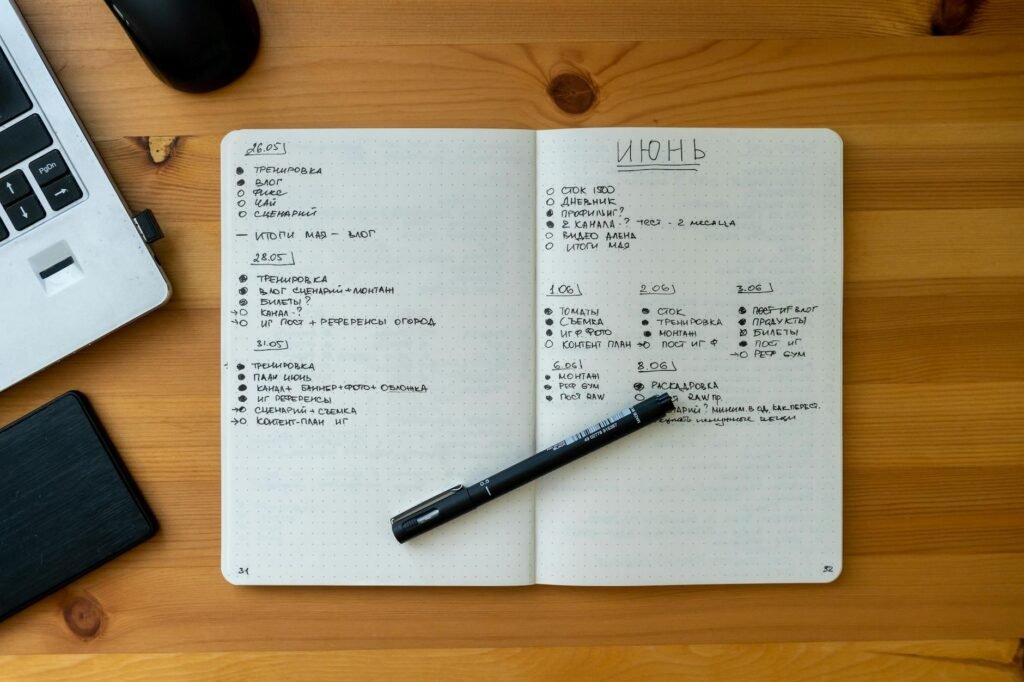 PgDn
26.05
ТРЕНИРОВКА
ВЛОГ
ФИКС
ЧАЙ
СЦЕНАРИЙ
— ИТОГИ МАЯ – ВЛОГ
28.05
ТРЕНИРОВКА
ВЛОГ СЦЕНАРИЙ + МОНТАЖ
БИЛЕТЫ?
КАНАЛ - ?
ИГ ПОСТ + РЕФЕРЕНСЫ ОГОРОД
31.05
ТРЕНИРОВКА
ПЛАН ИЮНЬ
КАНАЛ + БАННЕР + ФОТО + ОБЛОЖКА
ИГ РЕФЕРЕНСЫ
СЦЕНАРИЙ + СЪЕМКА
КОНТЕНТ-ПЛАН ИГ
31
ИЮНЬ
СТОК 1500
ДНЕВНИК
ПРОФИЛИНГ?
2 КАНАЛА - ? ТЕСТ - 2 МЕСЯЦА
ВИДЕО АЛЕНА
ИТОГИ МАЯ
1.06
ТОМАТЫ
СЪЕМКА
ИГ Ф. ФОТО
КОНТЕНТ ПЛАН
2.06
СТОК
ТРЕНИРОВКА
МОНТАЖ
ПОСТ ИГ Ф
3.06
ПОСТ ИГ ВЛОГ
ПРОДУКТЫ
БИЛЕТЫ
ПОСТ ИГ
РЕФ GYM
6.06
МОНТАЖ
РЕФ GYM
ПОСТ RAW
8.06
РАСКАДРОВКА
RAW ПР.
МИНИМ. В ОД, КАК ПЕРЕСТ.
НЕНУЖНЫЕ ВЕЩИ
0.5
32